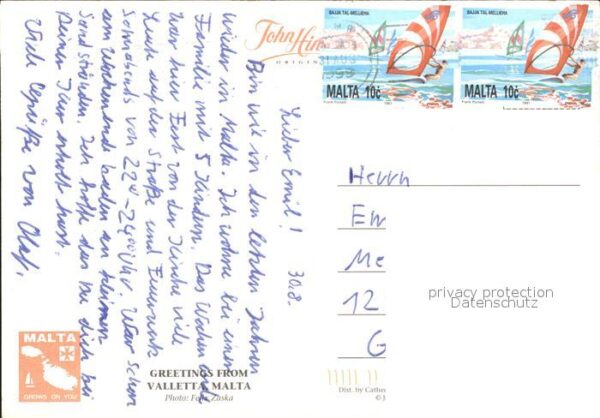 John Hin
ORIGIN
BAJJIA TAL-MELLIEHA
MALTA 10c
BAJJIA TAL-MELLIEHA
MALTA 10c
30.8.
Lieber Emil!
Bin wie in den letzten Jahren
wieder in Malta. Ich wohne bei einer
Familie mit 5 Kindern. Das Wochen
war hier Fest von der Kirche viele
Leute auf der Straße und Feuerwerk
Sonnabends von 22°°-24°° Uhr. War schon
am Wochenende baden an kleinen
Sandstränden. Ich hoffe den Du dich bei
Deiner Kur erholt hast.
Viele Grüße von Olaf.
Herrn
Em
Me
12
G
privacy protection
Datenschutz
MALTA
GROWS ON YOU
GREETINGS FROM
VALLETTA, MALTA
Photo: Zaska
Dist. by Cathus
© J